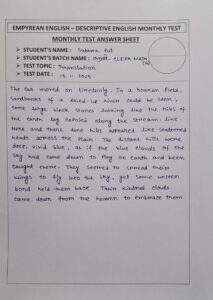 EMPYREAN ENGLISH – DESCRIPTIVE ENGLISH MONTHLY TEST
MONTHLY TEST ANSWER SHEET
➤ STUDENT'S NAME :
➤ STUDENT'S BATCH NAME : CLERK MAIN
➤ TEST TOPIC : Translation
➤ TEST DATE : 13-11-2025
The car moved on timelessly. In a barren field,
sandbanks of a dried-up river could be seen;
some large black stones looking like the hills of
the earth lay exposed along the stream-line.
Here and there some hills appeared like scattered
heads across the plain. The distant hills were
vivid blue, as if the blue clouds of the
sky had come down to play on earth and been
caught there. They seemed to spread their
wings to fly into the sky, yet some unseen
bond held them back. Their kindred clouds
came down from the heaven to embrace them.